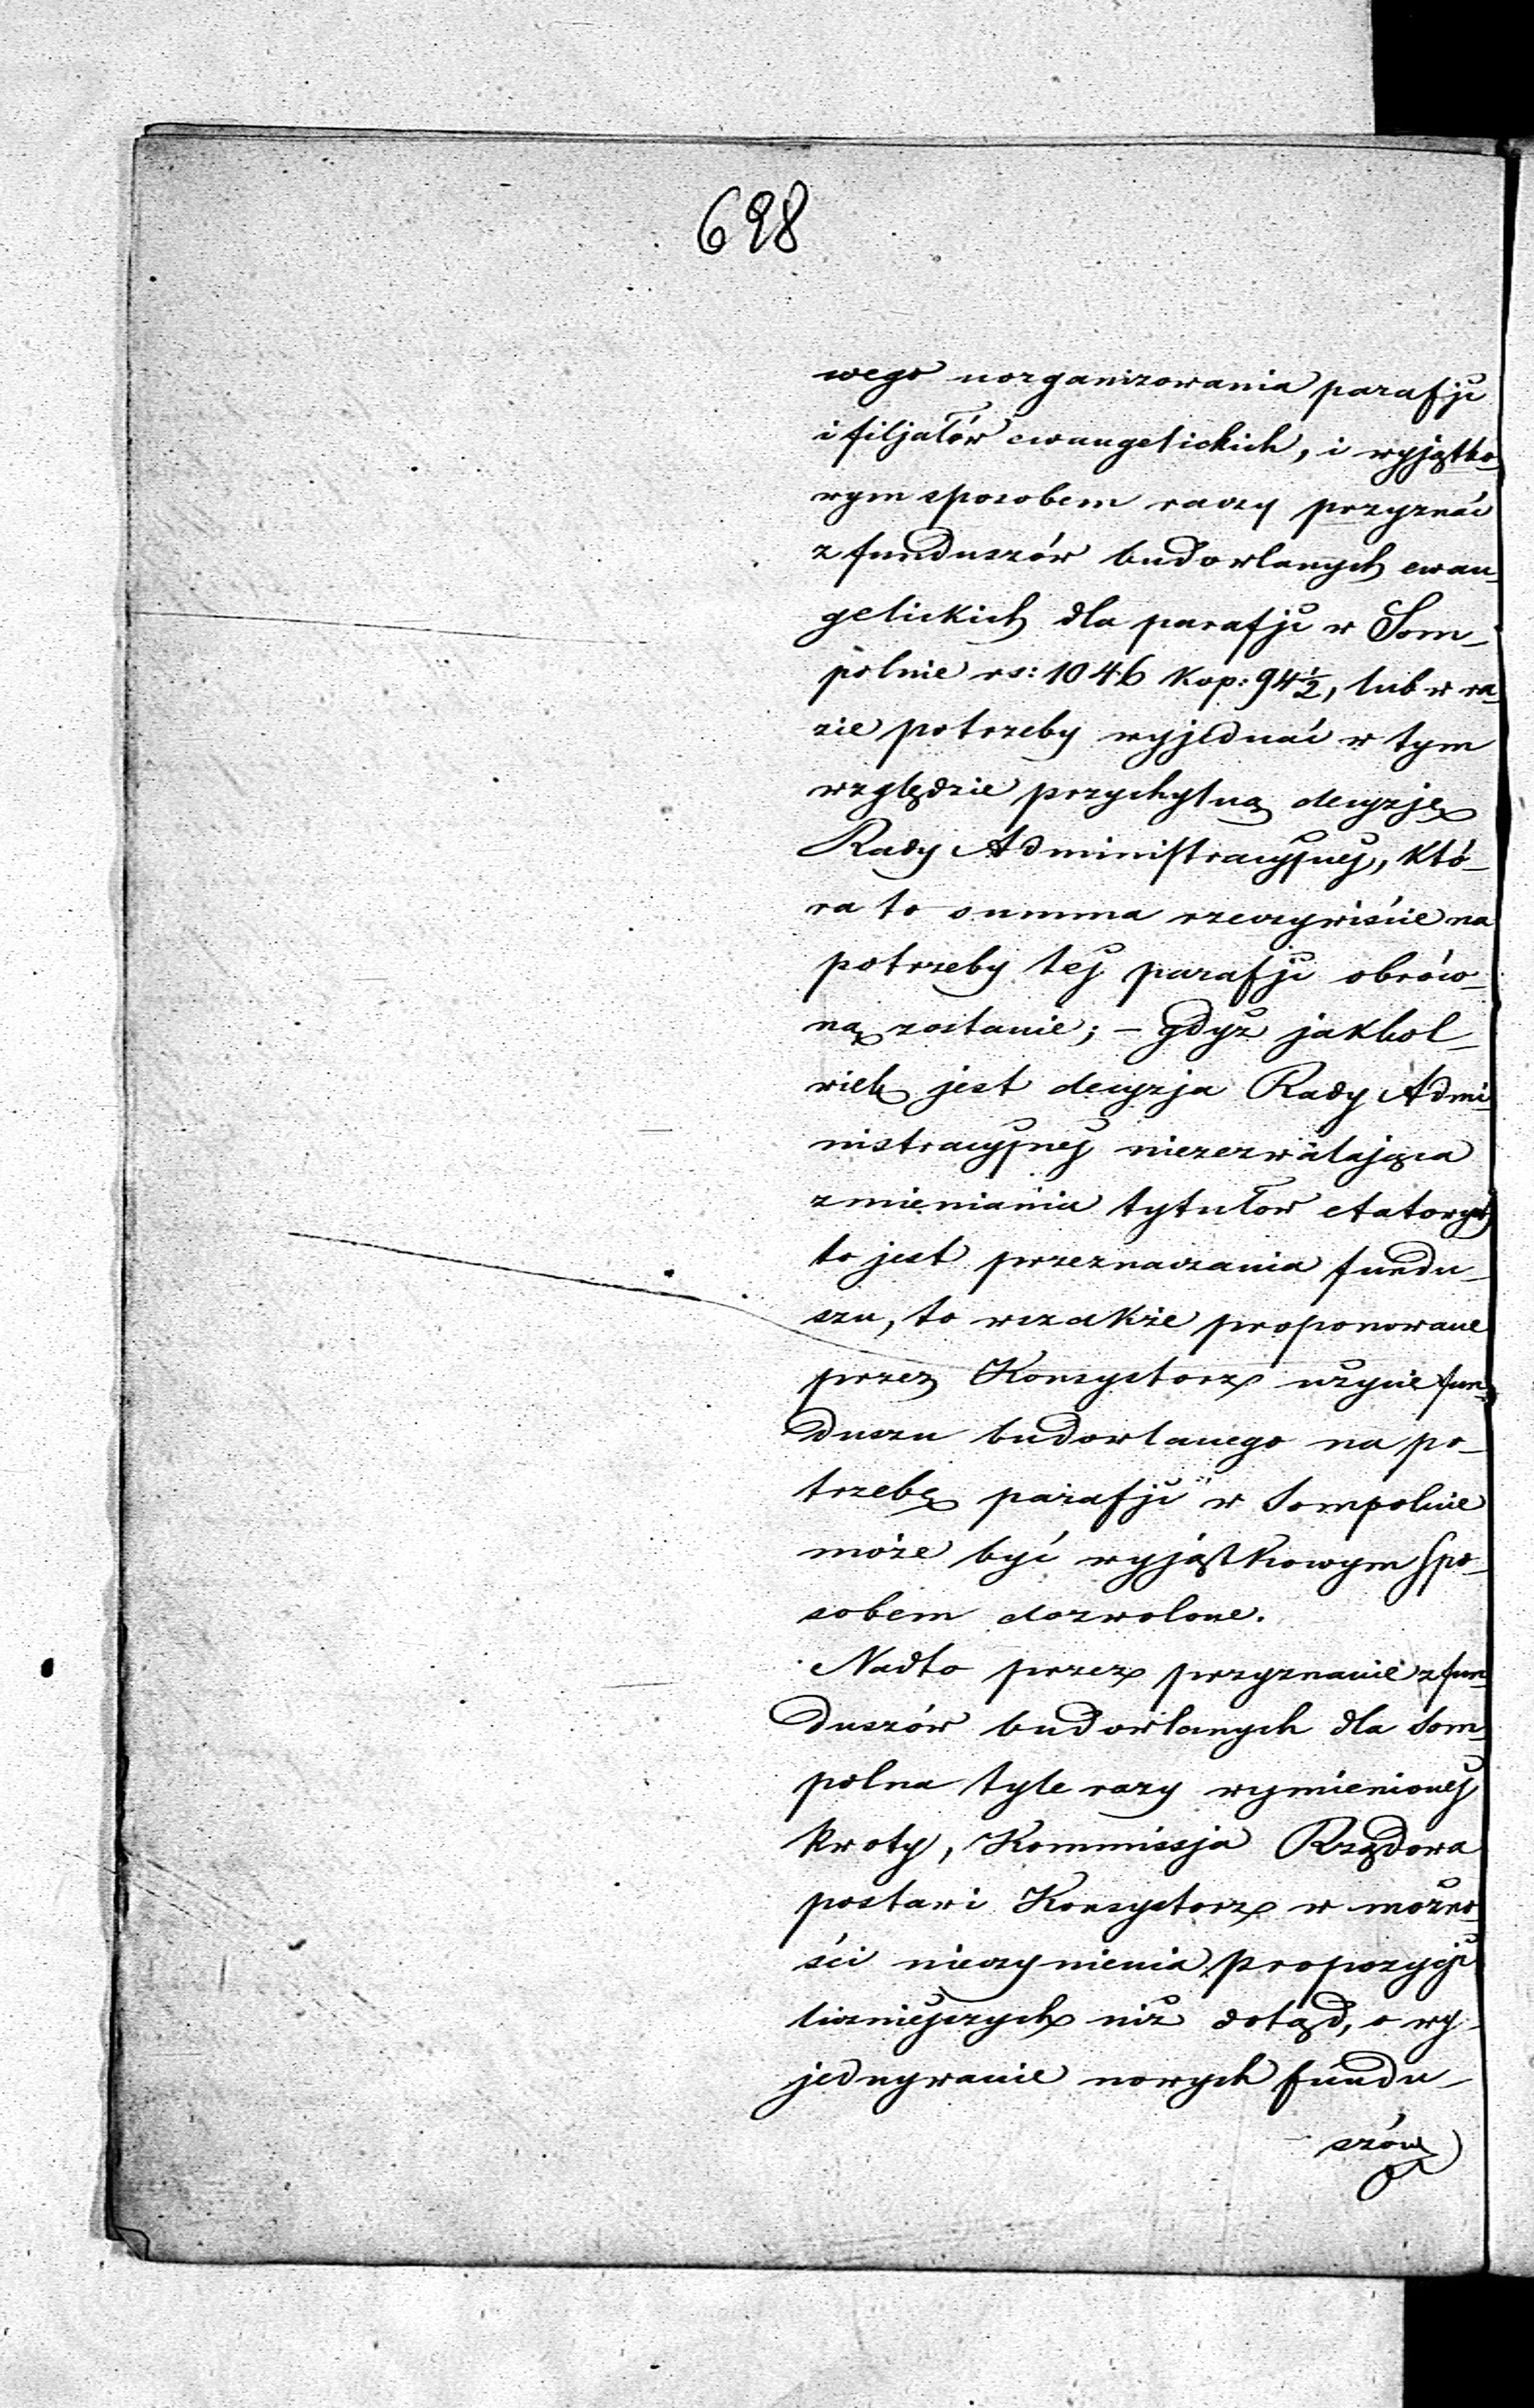 698
wego uorganizowania parafji
i filjałów ewangelickich, i wyjątko-
wym sposobem raczy przyznać
z funduszów budowlanych ewan-
gelickich dla parafji w Som-
polnie rs: 1046 kop: 94½, lub w ra-
zie potrzeby wyjednać w tym
względzie przychylną decyzję
Rady Administracyjnej, któ-
ra to summa rzeczywiście na
potrzeby tej parafji obróco-
ną zostanie; – gdyż jakkol-
wiek jest decyzja Rady Admi-
nistracyjnej niezezwalająca
zmieniania tytułów etatowych
to jest przeznaczania fundu-
szu, to wszakże proponowane
przez Konsystorz użycie fun-
duszu budowlanego na po-
trzebę parafji w Sompolnie
może być wyjątkowym spo-
sobem dozwolone.
Nadto przez przyznanie z fun-
duszów budowlanych dla Som-
polna tyle razy wymienionej
kwoty, Kommissja Rządowa
postawi Konsystorz w możno-
ści nieczynienia propozycji
liczniejszych niż dotąd, o wy-
jednywanie nowych fundu-
szów